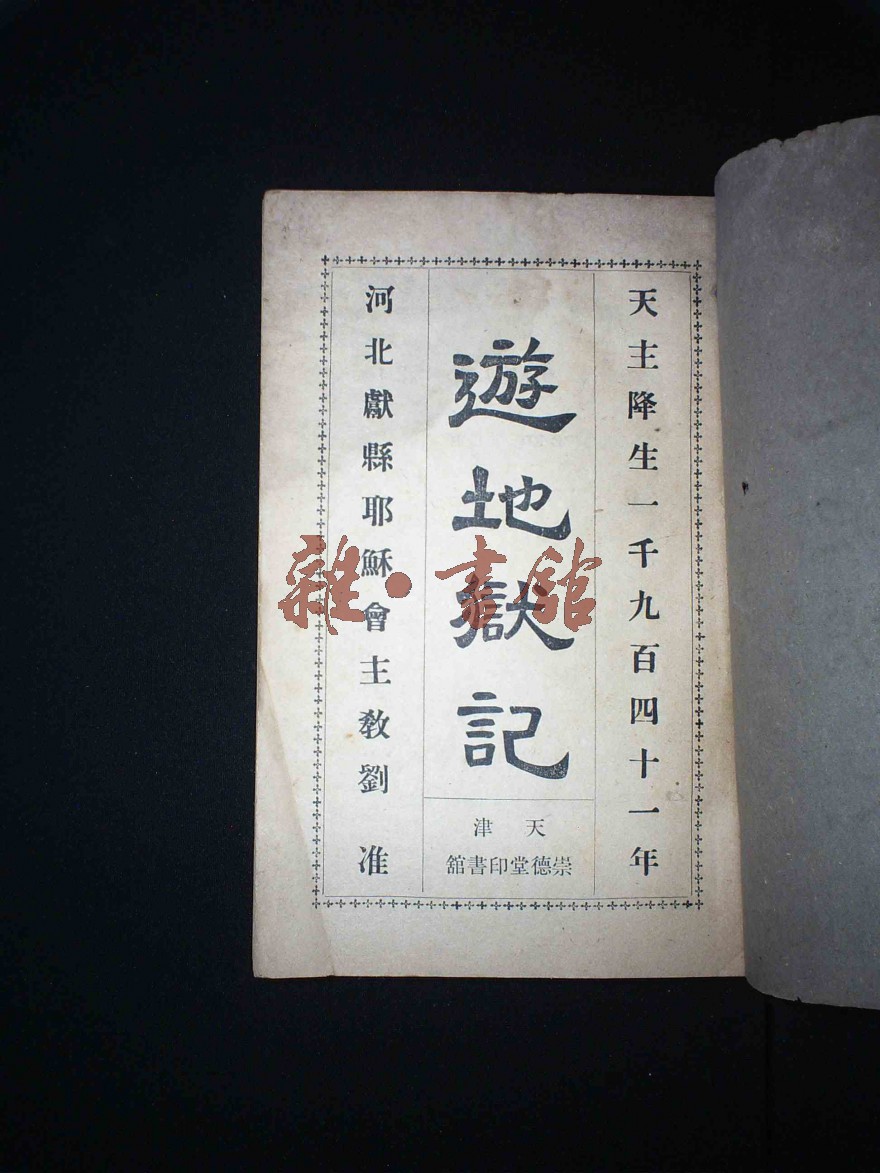 天主降生一千九百四十一年
遊地獄記
天津
崇德堂印書館
河北獻縣耶穌會主教劉 准
雜·書館